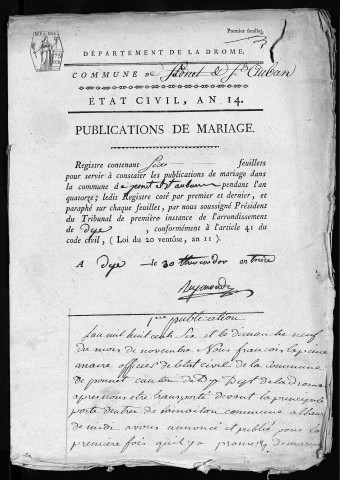 Premier feuillet
DÉPARTEMENT DE LA DROME.
COMMUNE DE Ponet & St Auban
ÉTAT CIVIL, AN 14.
PUBLICATIONS DE MARIAGE.
Registre contenant Six feuillets
pour servir à constater les publications de mariage dans
la commune de ponet et st auban pendant l'an
quatorze; ledit Registre coté par premier et dernier, et
paraphé sur chaque feuilles, par nous soussigné Président
du Tribunal de première instance de l'arrondissement
de Dye, conformément à l'article 41 du
code civil, (Loi du 20 ventôse, an 11)
A Dye le 30 thermidor an treize
1re publication
Lan mil huit cent Six et le dimanche neuf
du mois de novembre Nous francois
maire officier de l'état civil de la commune
de ponnet canton de Dye Dept de la Drome
apres nous etre transporté devant la principale
porte dentrée de commune
de midi avons annoncé et publié pour la
première fois quil y a promesse de mariage